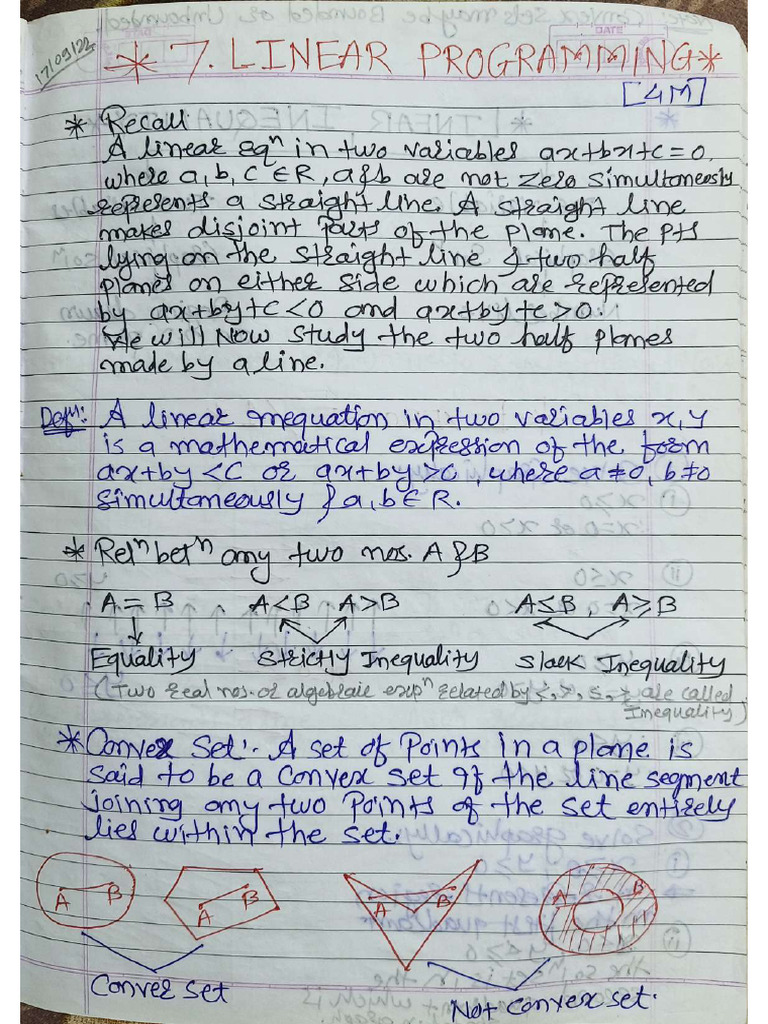 17/09/22
* 7. LINEAR PROGRAMMING *
[4M]
* Recall
A linear eqⁿ in two variables ax+bx+c=0,
where a,b,C ∈R, a & b are not zero simultaneosly
represents a straight line. A straight line
makes disjoint parts of the plane. The pts
lying on the straight line & two half
planes on either side which are represented
by ax+by+c<0 and ax+by+c>0.
We will Now study the two half planes
made by a line.
Defn: A linear inequation in two variables x,y
is a mathematical expression of the form
ax+by <C or ax+by >C, where a≠0, b≠0
simultaneously & a,b∈R.
* Relⁿ betⁿ any two nos. A & B
A = B A<B A>B A≤B, A≥B
Equality Strictly Inequality Slack Inequality
(Two real nos. or algebraic expⁿ related by <, >, ≤, ≥ are called
Inequality)
* Convex Set: A set of Points in a plane is
said to be a convex set if the line segment
joining any two Points of the set entirely
lies within the set.
A B A B A B A B
Convex set Not convex set.